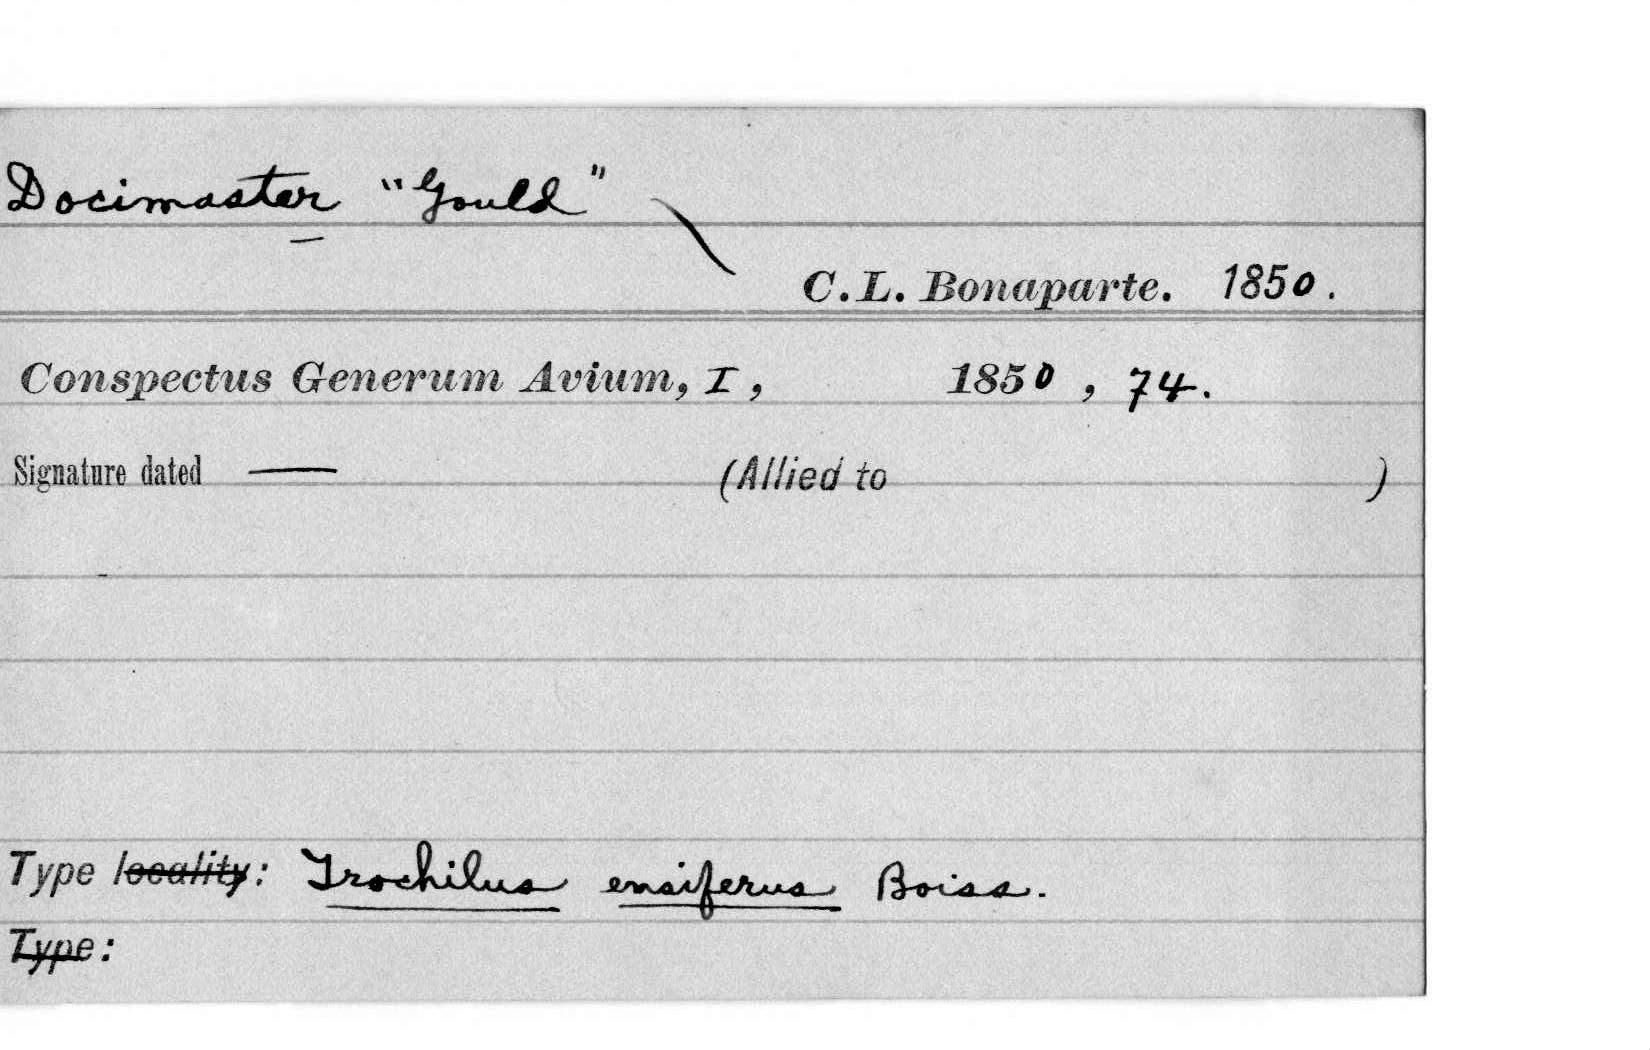 Docimaster "Gould"
C. L. Bonaparte. 1850.
Conspectus Generum Avium, I, 1850, 74.
Signature dated — (Allied to )
Type locality: Trochilus ensiferus Boiss.
Type: